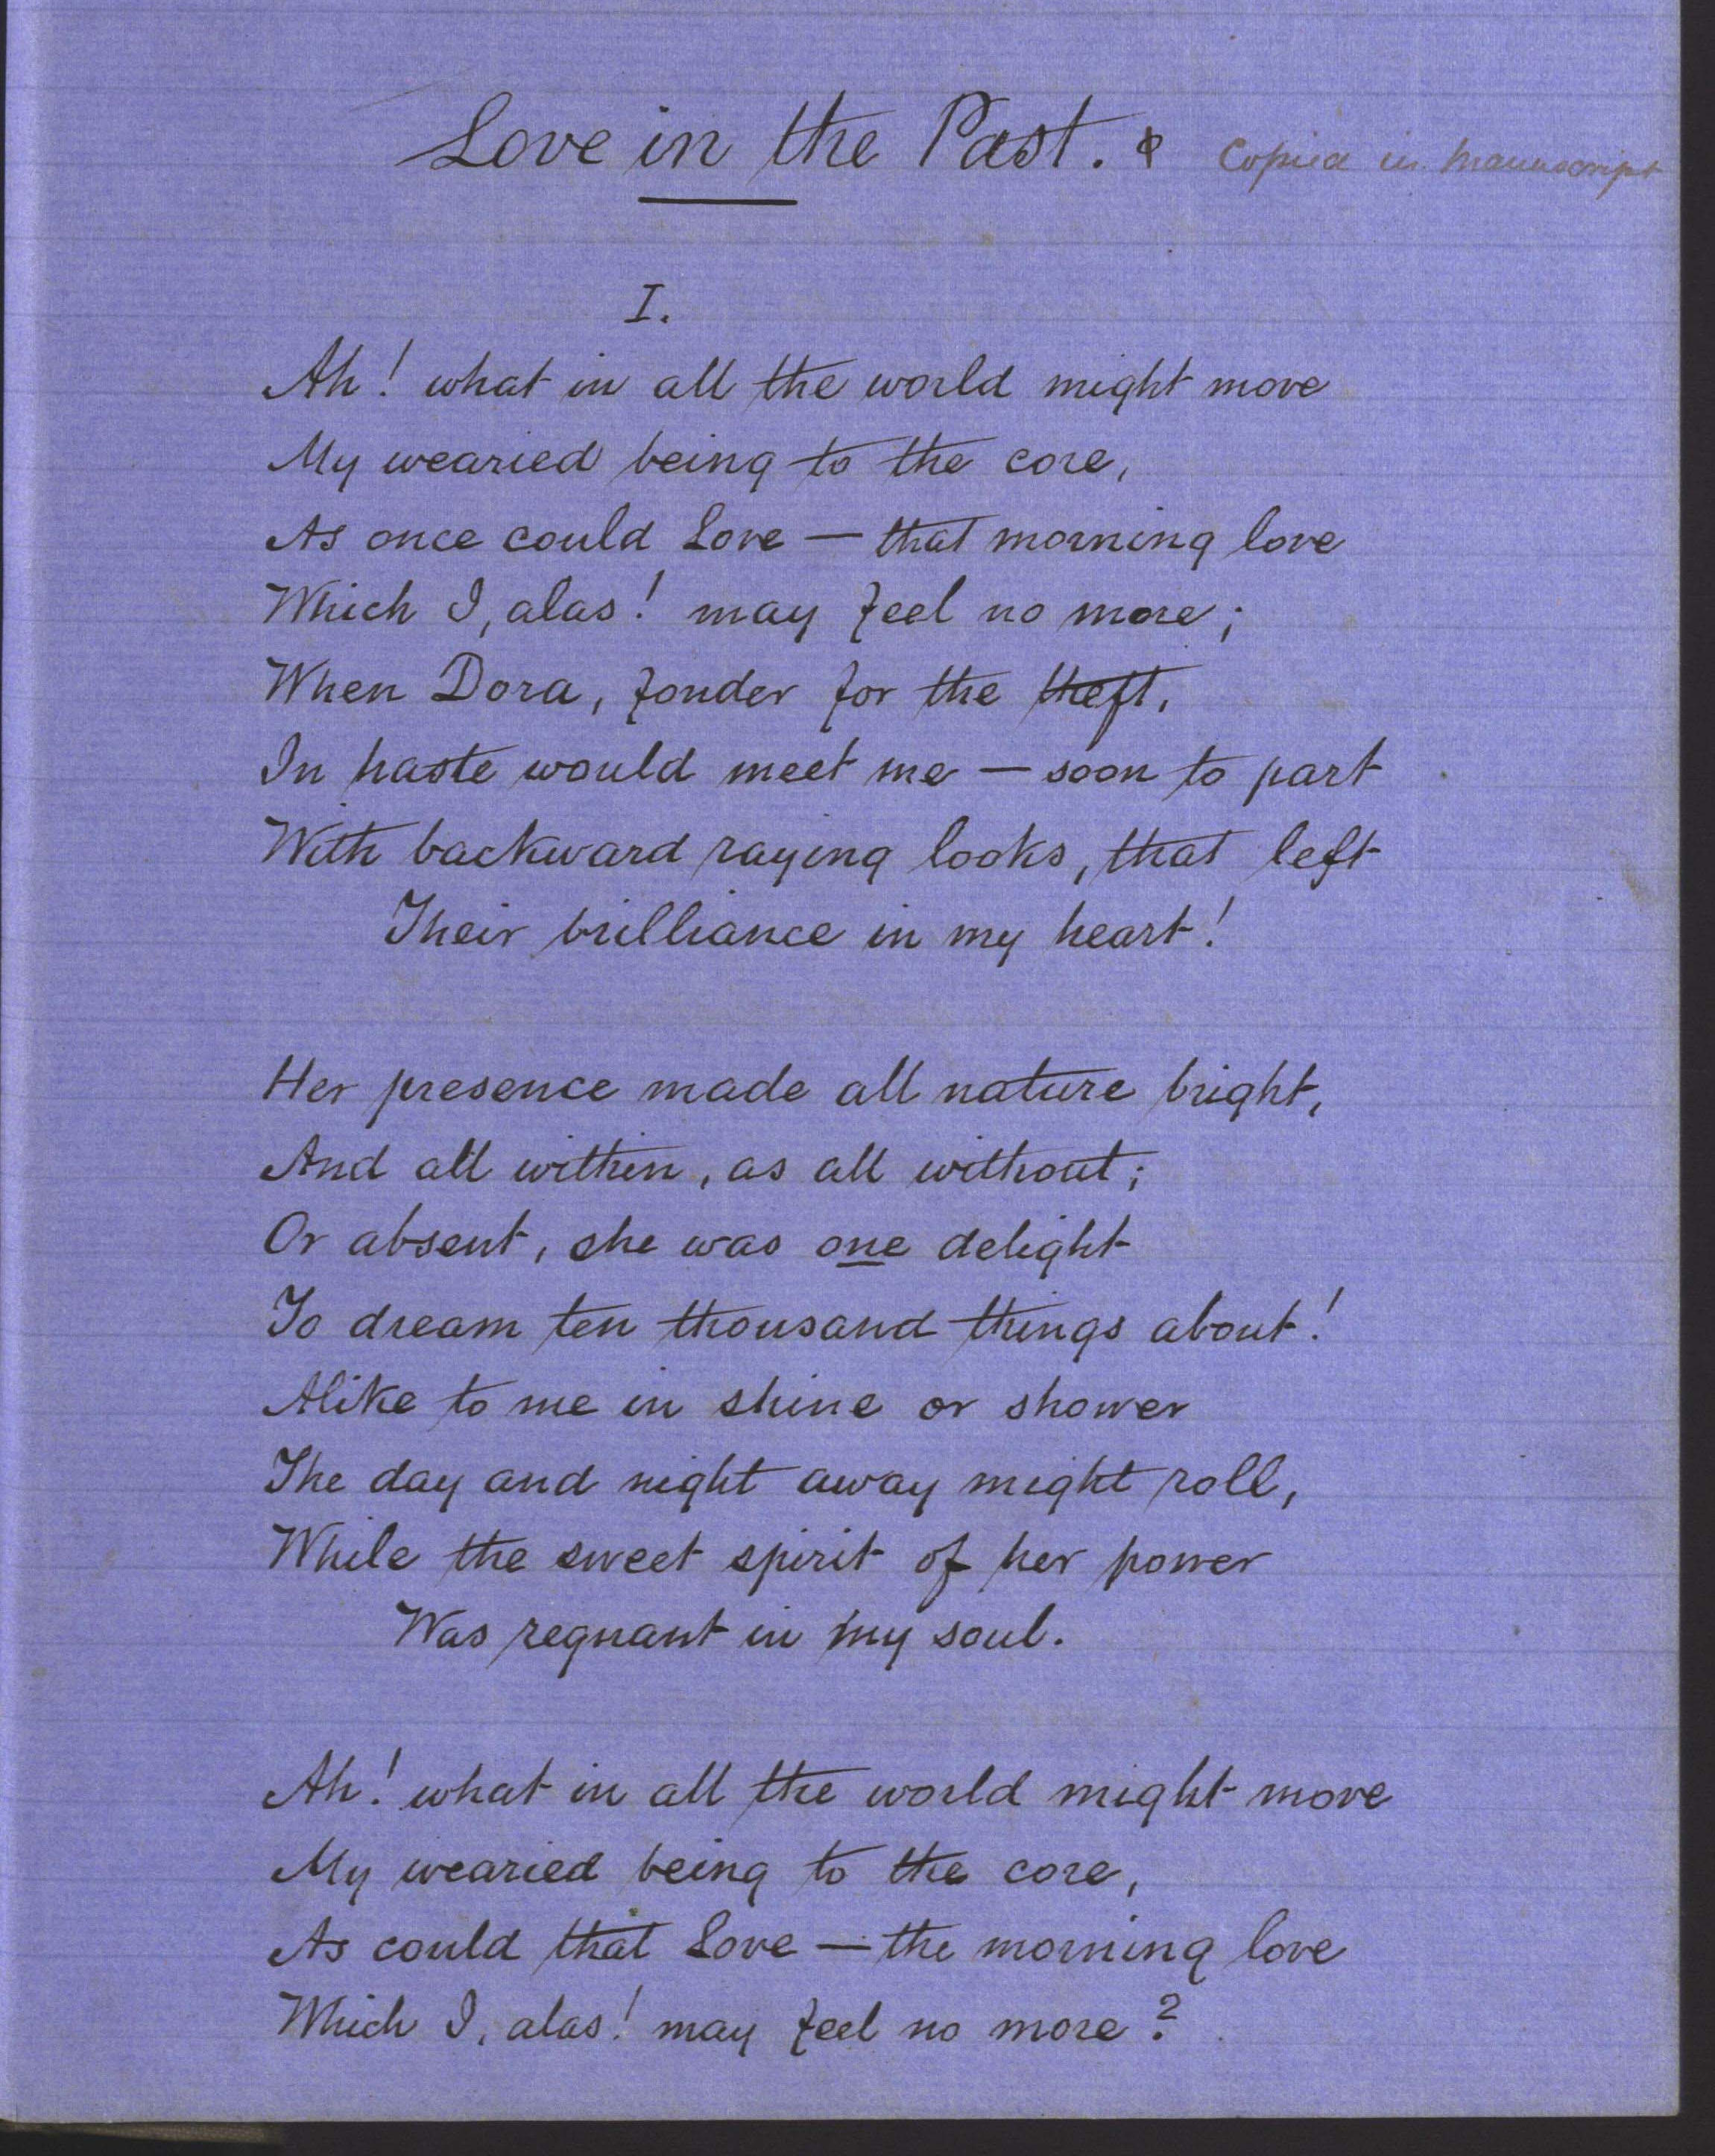 Love in the Past. Copied in Manuscript
I.
Ah! what in all the world might move
My wearied being to the core,
As once could Love — that morning love
Which I, alas! may feel no more;
When Dora, fonder for the theft,
In haste would meet me — soon to part
With backward raying looks, that left
Their brilliance in my heart!
Her presence made all nature bright,
And all within, as all without;
Or absent, she was one delight
To dream ten thousand things about!
Alike to me in shine or shower
The day and night away might roll,
While the sweet spirit of her power
Was regnant in my soul.
Ah! what in all the world might move
My wearied being to the core,
As could that Love — the morning love
Which I, alas! may feel no more?